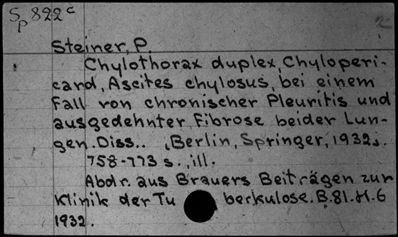 Sp 822c
Steiner, P.
Chylothorax duplex, Chyloperi-
card, Ascites chylosus, bei einem
Fall von chronischer Pleuritis und
ausgedehnter Fibrose beider Lun-
gen. Diss.. , Berlin, Springer, 1932.
758-773 s., ill.
Abdr. aus Brauers Beiträgen zur
Klinik der Tu berkulose. B.81. H.6
1932.